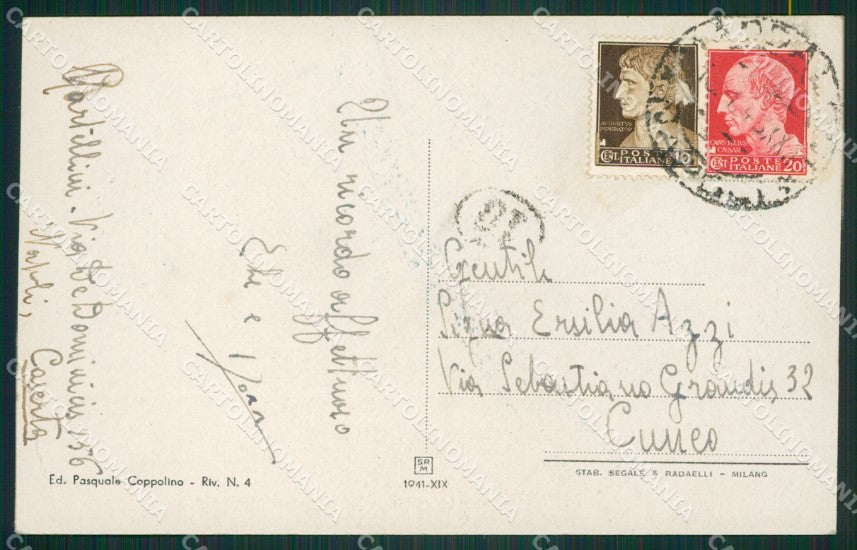 Un ricordo affettuoso
Ebe e
Martellini - Via De Dominicis, 156
Napoli,
Caserta
Gentile
Sig.na Ersilia Azzi
Via Sebastiano Grandis 32
Cuneo
AVGVSTVS
IMPERATOR
CENT POSTE
ITALIANE 10
CAIVS IVLIVS
CAESAR
CENT POSTE
ITALIANE 20
Ed. Pasquale Coppolino - Riv. N. 4
SR
M
1941-XIX
STAB. SEGALE & RADAELLI - MILANO
CARTOLINOMANIA